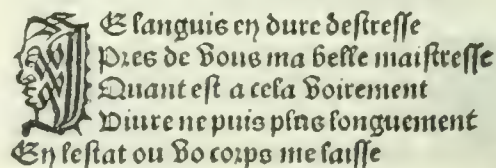 JE languis en dure destresse
Pres de vous ma belle maistresse
Quant est a cela voirement
Viure ne puis plus longuement
En lestat ou vo corps me laisse